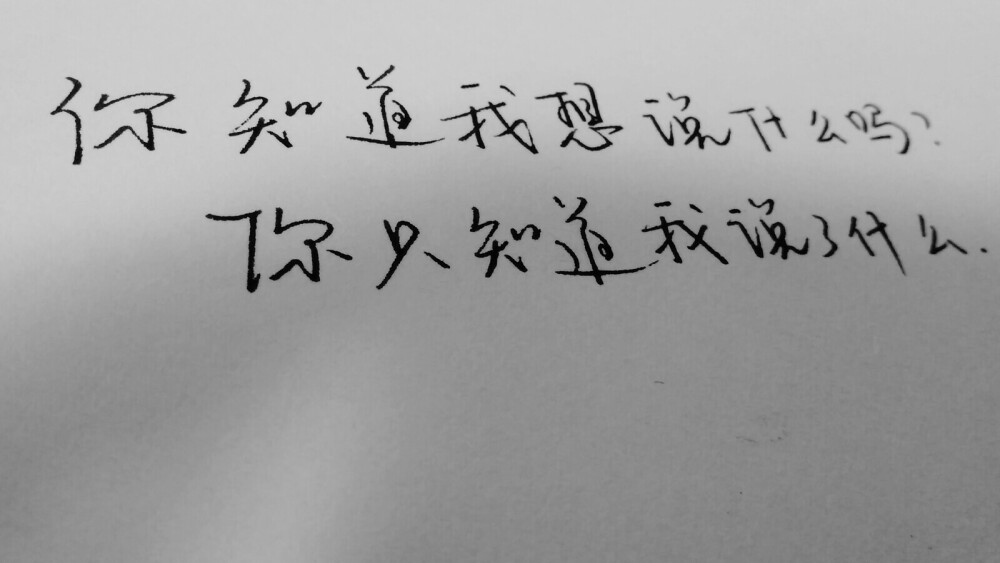 你知道我想说什么吗?
你只知道我说了什么.